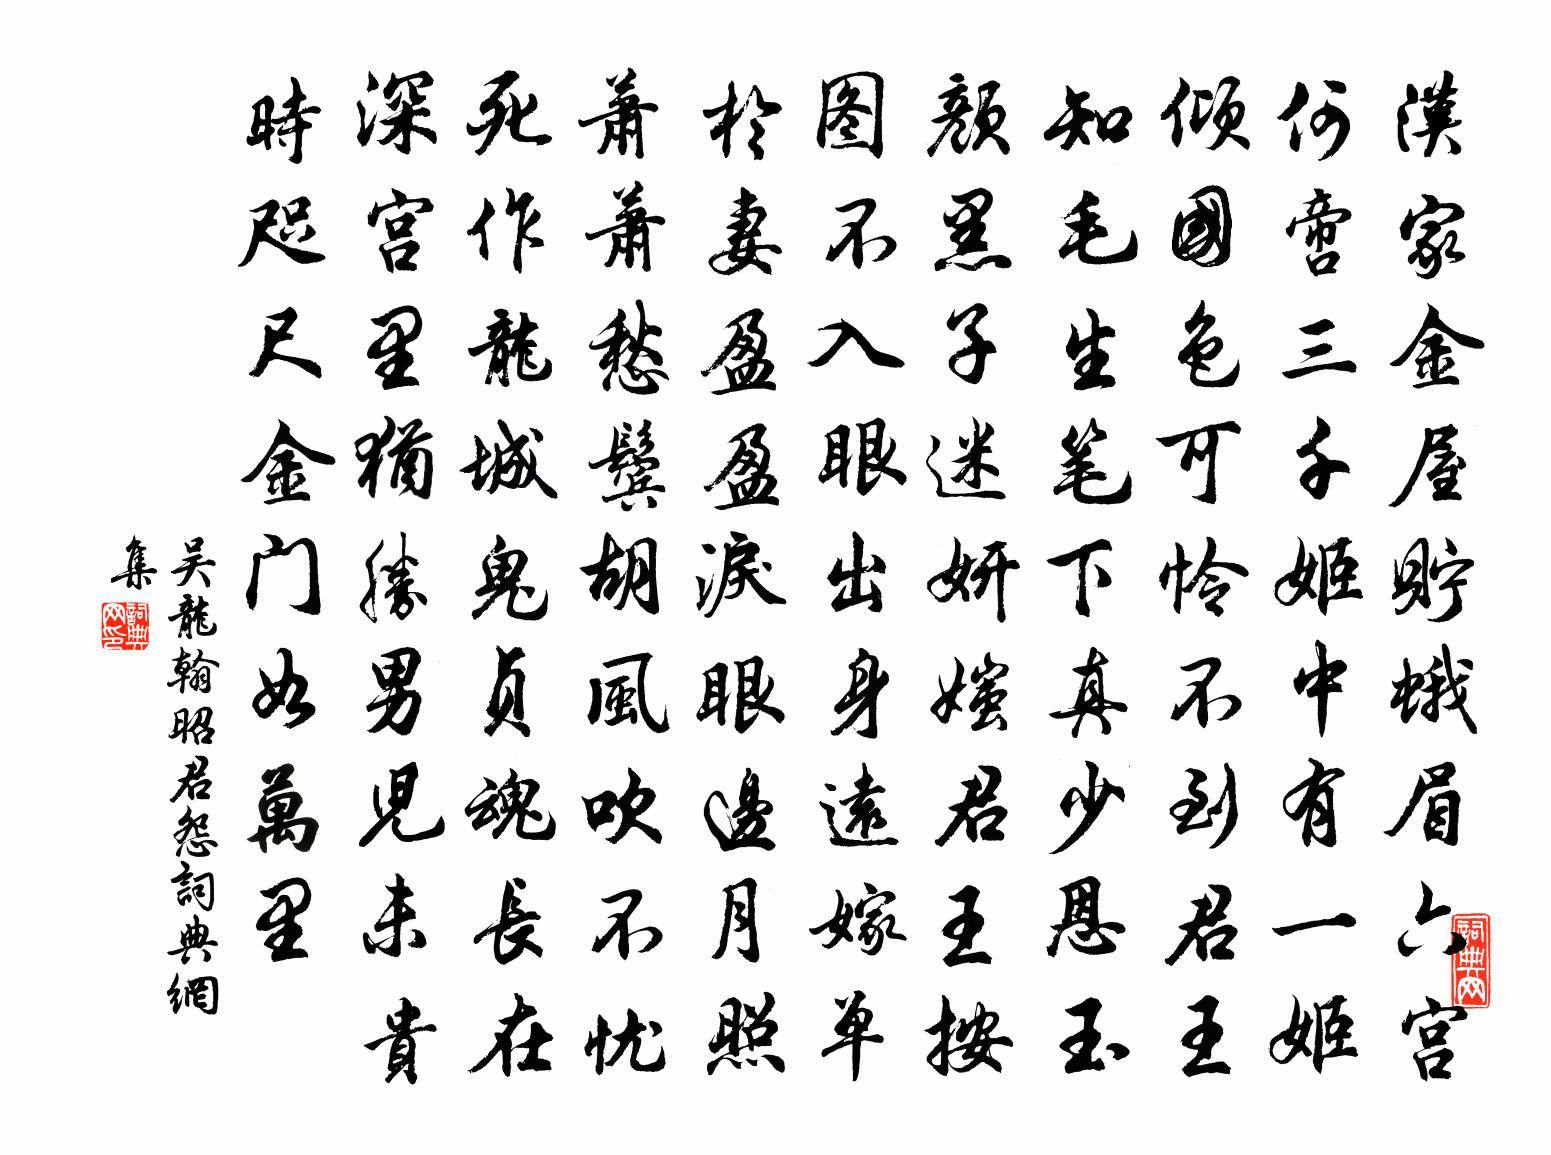 漢家金屋貯蛾眉六宫
何啻三千姬中有一姬
傾國色可怜不到君王
知毛生笔下真少恩玉
顏黑子迷妍媸君王按
图不入眼出身遠嫁单
於妻盈盈淚眼邊月照
蕭蕭愁鬓胡風吹不忧
死作龍城鬼貞魂長在
深宫里猶勝男児未貴
時咫尺金门如萬里
吴龍翰昭君怨詞典網
集
詞典网
詞典网印